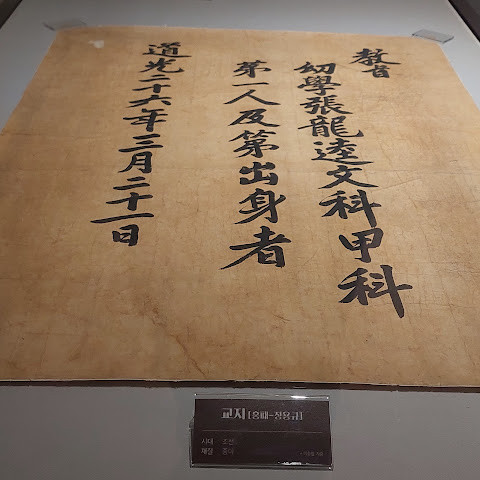 教旨
幼學張龍逵文科甲科
第一人及第出身者
道光二十六年三月二十一日
교지 [홍패-장용규]
시대 조선
재질 종이